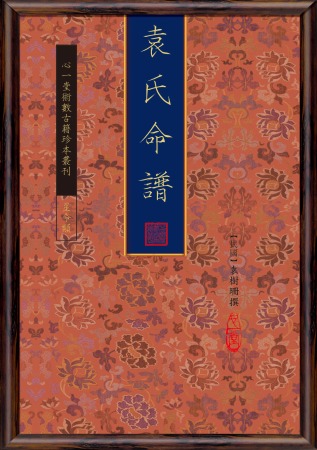 袁氏命譜
心一堂術數古籍珍本叢刊
【民國】袁樹珊撰